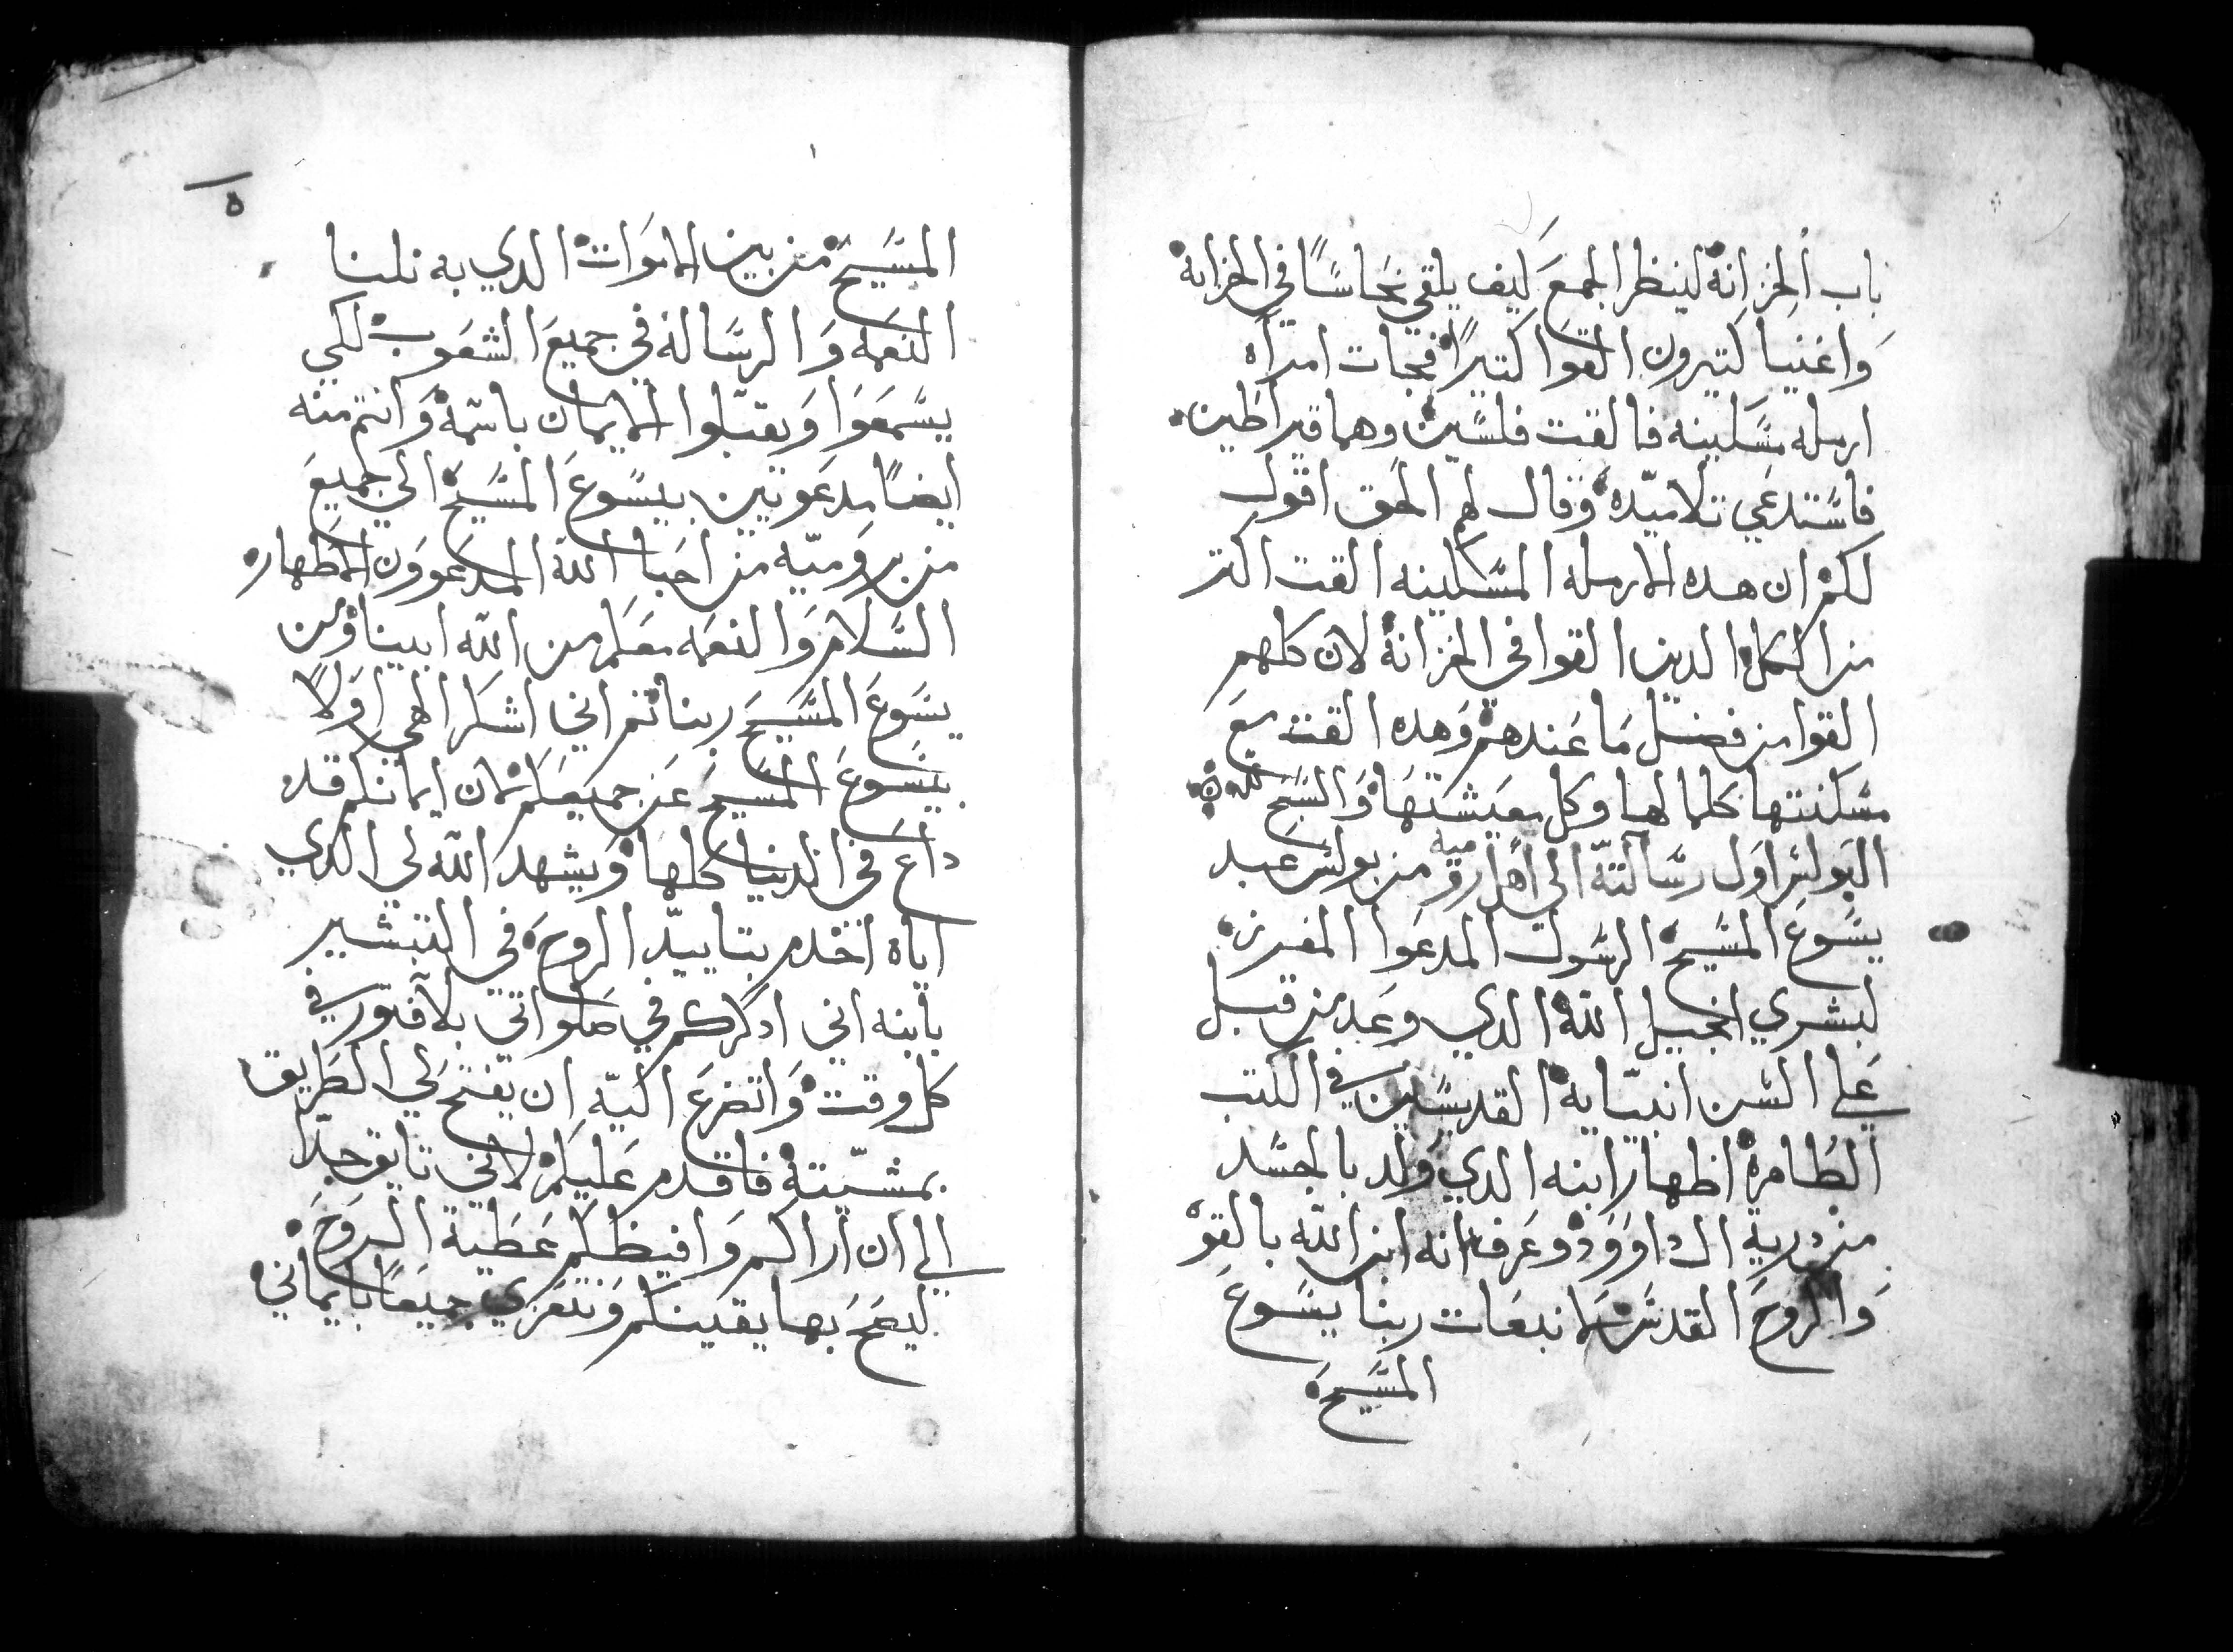 باب الخزانة لينظر الجمع كيف يلقي نحاسًا في الخزانة
واغنيا كتيرون القوا كتيرًا فجات امراه
ارمله مسكينه فالقت فلسين وهما قيراطين
فاستدعي تلاميده وقال لهم الحق اقول
لكم ان هده الارمله المسكينه القت اكتر
من الكل الدين القوا في الخزانة لان كلهم
القوا من فضل ما عندهم وهده القت مع
مسكنتها كلما لها وكل معيشتها والسبح لله
البولس اول رسالته الي اهل رومية من بولس عبد
يسوع المسيح الرسول المدعوا المفرز
لبشري انجيل الله الدي وعد من قبل
علي السن انبيايه القديسين في الكتب
الطاهرة اظهار ابنه الدي ولد بالجسد
من درية ال داوود وعرف انه ابن الله بالقوه
والروح القدس لانبعات ربنا يسوع
المسيح
ه
المسيح من بين الاموات الدي به نلنا
النعمه والرسالة في جميع الشعوب لكي
يسمعوا ويقبلوا الايمان باسمه وانتم منه
ايضًا مدعويين بيسوع المسيح الي جميع
من بروميه من احبا الله المدعوون الاطهار
السلام والنعمه معكم من الله ابينا ومن
يسوع المسيح ربنا تم اني اشكر الهي اولًا
بيسوع المسيح عن جميعكم لان ايمانكم قد
داع في الدنيا كلها ويشهد الله لي الدي
اياه اخدم بتاييد الروح في التبشير
بابنه اني ادكركم في صلواتي بلا فتور في
كل وقت واتضرع اليه ان يفتح لي الطريق
بمشيته فاقدم عليكم لاني تايق جدًا
الي ان اراكم وافيظكم عطية الروح
ليصح بها يقينكم ونتعزي جميعًا بايماني